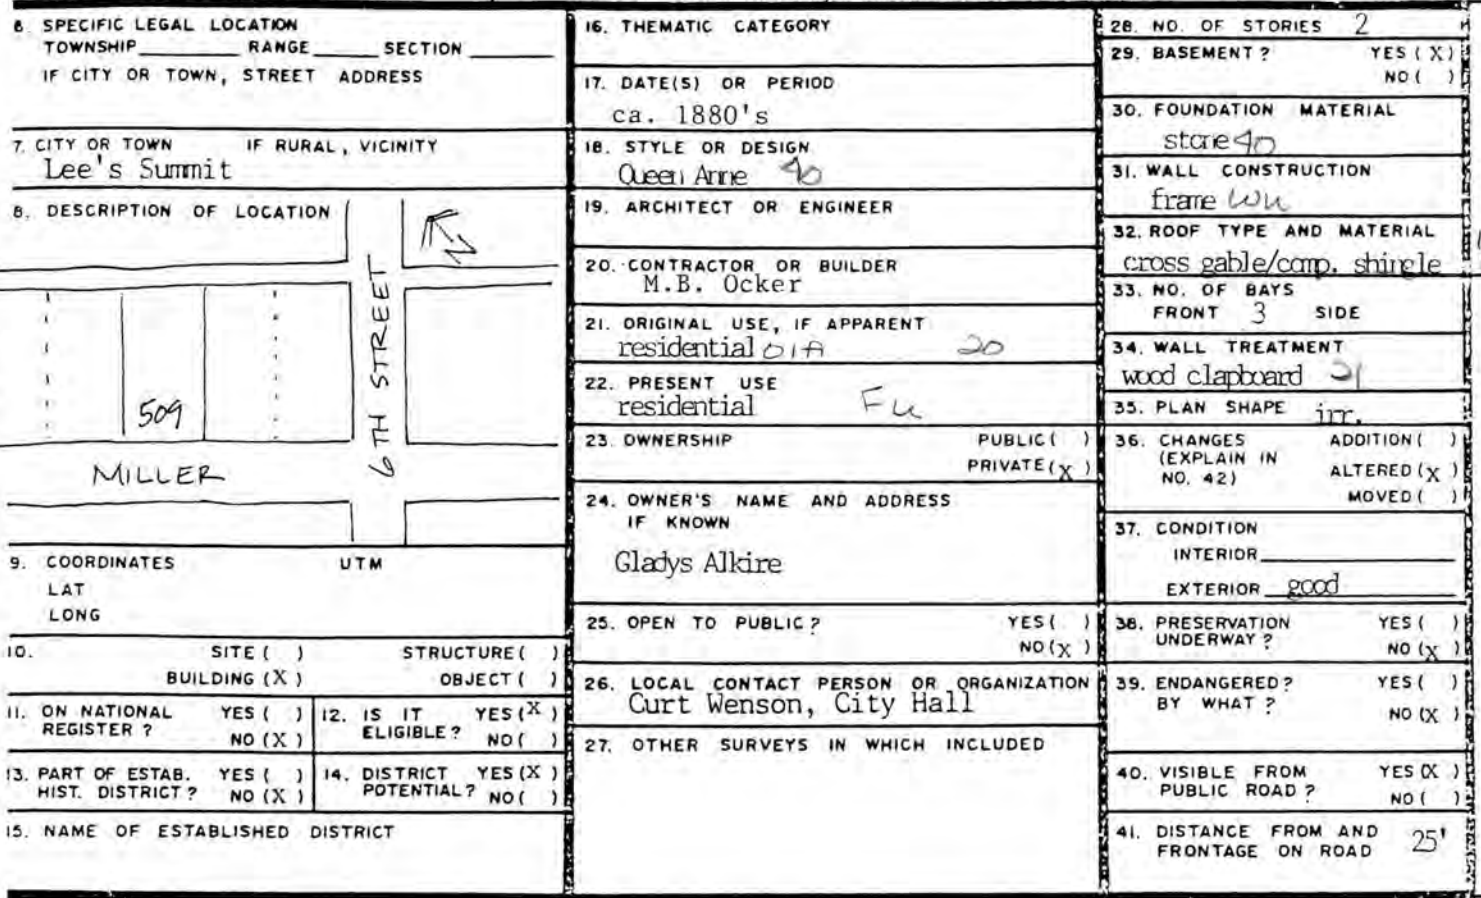 6. SPECIFIC LEGAL LOCATION
TOWNSHIP________ RANGE______ SECTION ______
IF CITY OR TOWN, STREET ADDRESS
7. CITY OR TOWN IF RURAL, VICINITY
Lee's Summit
8. DESCRIPTION OF LOCATION
N
6TH STREET
509
MILLER
9. COORDINATES UTM
LAT
LONG
10. SITE ( ) STRUCTURE ( )
BUILDING (X) OBJECT ( )
11. ON NATIONAL REGISTER ? YES ( ) NO (X)
12. IS IT ELIGIBLE ? YES (X) NO ( )
13. PART OF ESTAB. HIST. DISTRICT ? YES ( ) NO (X)
14. DISTRICT POTENTIAL ? YES (X) NO ( )
15. NAME OF ESTABLISHED DISTRICT
16. THEMATIC CATEGORY
17. DATE(S) OR PERIOD
ca. 1880's
18. STYLE OR DESIGN
Queen Anne 40
19. ARCHITECT OR ENGINEER
20. CONTRACTOR OR BUILDER
M.B. Ocker
21. ORIGINAL USE, IF APPARENT
residential 01A 20
22. PRESENT USE
residential
23. OWNERSHIP PUBLIC ( )
PRIVATE (X)
24. OWNER'S NAME AND ADDRESS
IF KNOWN
Gladys Alkire
25. OPEN TO PUBLIC ? YES ( )
NO (X)
26. LOCAL CONTACT PERSON OR ORGANIZATION
Curt Wenson, City Hall
27. OTHER SURVEYS IN WHICH INCLUDED
28. NO. OF STORIES 2
29. BASEMENT ? YES (X)
NO ( )
30. FOUNDATION MATERIAL
stone 40
31. WALL CONSTRUCTION
frame
32. ROOF TYPE AND MATERIAL
cross gable/comp. shingle
33. NO. OF BAYS
FRONT 3 SIDE
34. WALL TREATMENT
wood clapboard 21
35. PLAN SHAPE irr.
36. CHANGES (EXPLAIN IN NO. 42) ADDITION ( )
ALTERED (X)
MOVED ( )
37. CONDITION
INTERIOR________
EXTERIOR good
38. PRESERVATION UNDERWAY ? YES ( )
NO (X)
39. ENDANGERED ? BY WHAT ? YES ( )
NO (X)
40. VISIBLE FROM PUBLIC ROAD ? YES (X)
NO ( )
41. DISTANCE FROM AND FRONTAGE ON ROAD 25'